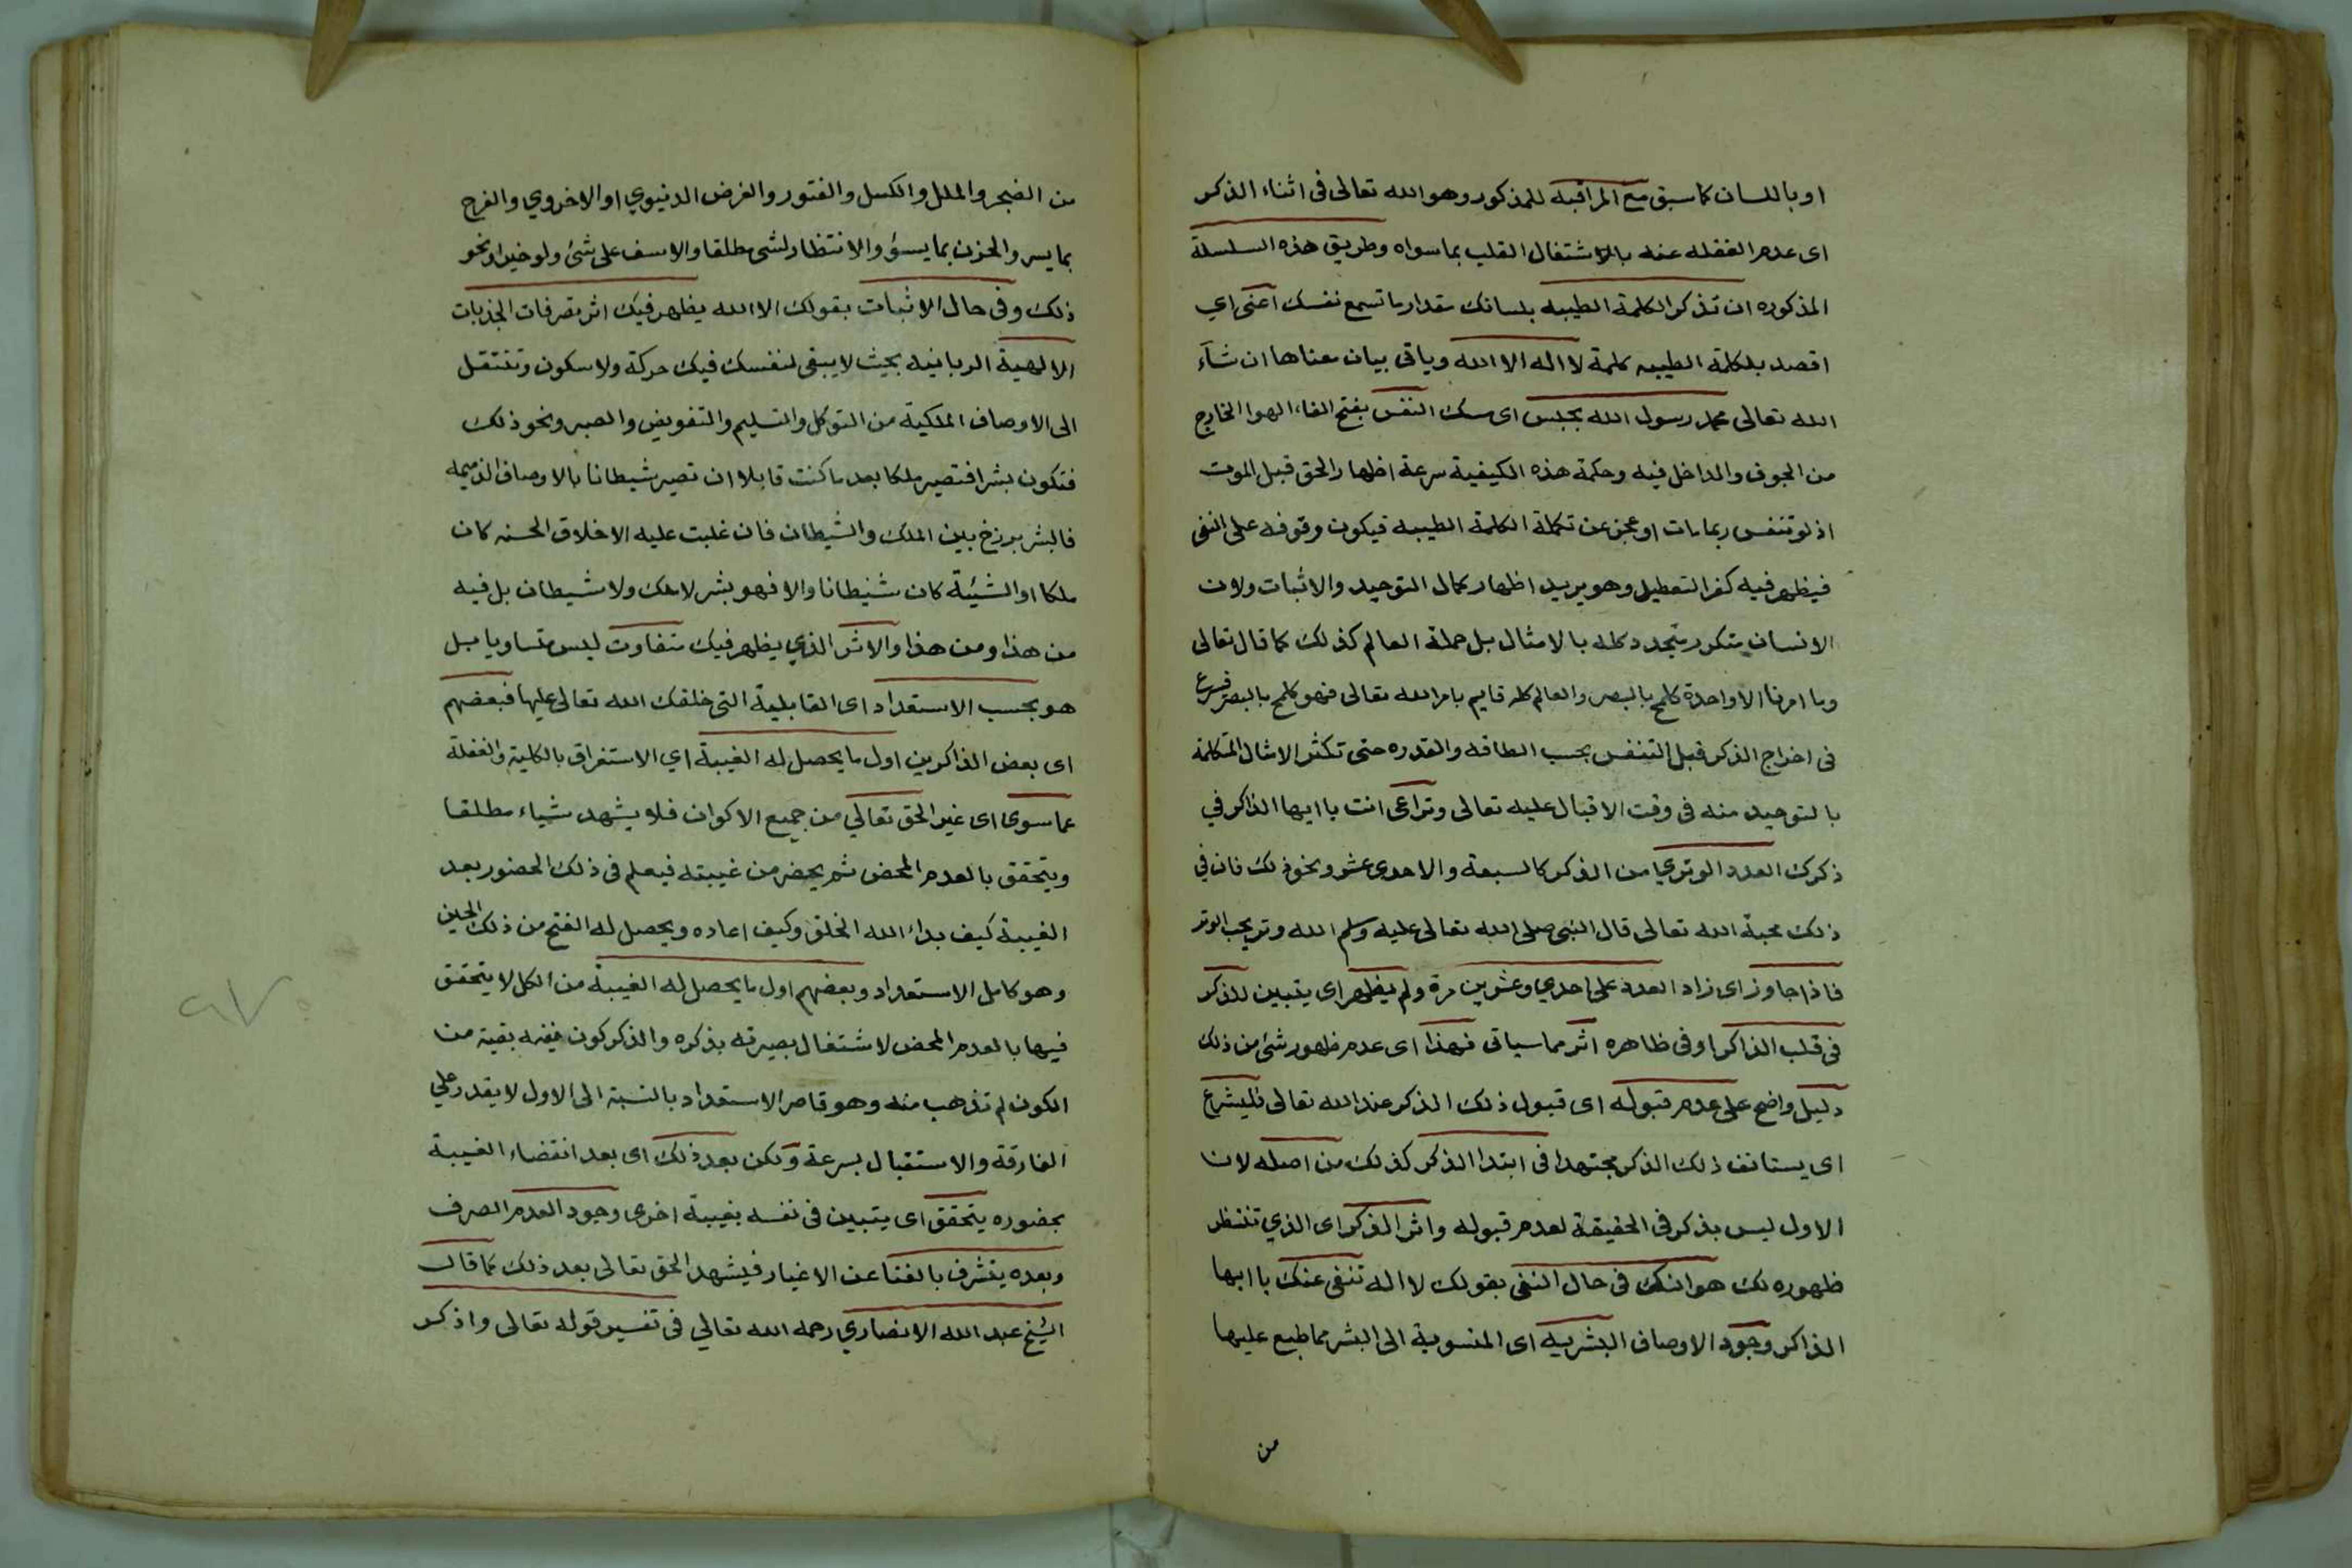 او باللسان كما سبق مع المراقبه للمذكور وهو الله تعالى فى اثناء الذكر
اى عدم الغفله عنه بالاشتغال القلب بما سواه وطريق هذه السلسلة
المذكوره ان تذكر الكلمة الطيبه بلسانك مقدار ما تسمع نفسك اعنى اي
اقصد بلكلمة الطيبه كلمة لا اله الا الله وياتى بيان معناها ان شآء
الله تعالى محمد رسول الله بحبس اى مسك النفس بفتح الفاء الهوا الخارج
من الجوف والداخل فيه وحكمة هذه الكيفية سرعة اظهار الحق قبل الموت
اذ لو تنفس ربما مات او عجز عن تكملة الكلمة الطيبه فيكون وقوفه على النفى
فيظهر فيه كفر التعطيل وهو يريد اظهار كمال التوحيد والاثبات ولان
الانسان متكرر متجدد كله بالامثال بل جملة العالم كذلك كما قال تعالى
وما امرنا الا واحدة كلمح بالبصر والعالم كله قايم بامر الله تعالى فهو كلمح بالبصر فيسرع
فى اخراج الذكر قبل التنفس بحسب الطاقه والقدره حتى تكثر الامثال المتكلمة
بالتوحيد منه فى وقت الاقبال عليه تعالى وتراعى انت يا ايها الذاكر في
ذكرك العدد الوتري من الذكر كالسبعة والاحدى عشر ونحو ذلك فان في
ذلك محبة الله تعالى قال النبى صلى الله تعالى عليه وسلم الله وتر يحب الوتر
فاذا جاوز اى زاد العدد على احدي وعشرين مرة ولم يظهر اى يتبين للذكر
فى قلب الذاكر او فى ظاهره اثر مما سياتى فهذا اى عدم ظهور شئ من ذلك
دليل واضح على عدم قبوله اى قبول ذلك الذكر عند الله تعالى فليشرع
اى يستانف ذلك الذكر مجتهدا فى ابتدا الذكر كذلك من اصله لان
الاول ليس بذكر فى الحقيقة لعدم قبوله واثر الذكر اى الذي تنتظر
ظهوره لك هو انك فى حال النفى بقولك لا اله تنفى عنك يا ايها
الذاكر وجود الاوصاف البشريه اى المنسوبة الى البشر مما طبع عليها
من
من الضجر والملل والكسل والفتور والغرض الدنيوي او الاخروي والفرح
بما يسر والحزن بما يسؤ والانتظار لشى مطلقا والاسف على شئ ولو خيرا ونحو
ذلك وفى حال الاثبات بقولك الا الله يظهر فيك اثر تصرفات الجذبات
الالهية الربانيه بحيث لا يبقى لنفسك فيك حركة ولا سكون وتنتقل
الى الاوصاف الملكية من التوكل والتسليم والتفويض والصبر ونحو ذلك
فتكون بشرا فتصير ملكا بعد ما كنت قابلا ان تصير شيطانا بالاوصاف الذميمه
فالبشر برزخ بين الملك والشيطان فان غلبت عليه الاخلاق الحسنه كان
ملكا او الشيئة كان شيطانا والا فهو بشر لا ملك ولا شيطان بل فيه
من هذا ومن هذا والاثر الذي يظهر فيك متفاوت ليس متساويا بل
هو بحسب الاستعداد اى القابلية التى خلقك الله تعالى عليها فبعضهم
اى بعض الذاكرين اول ما يحصل له الغيبة اي الاستغراق بالكلية والغفلة
عما سوى اى غير الحق تعالي من جميع الاكوان فلا يشهد شياء مطلقا
ويتحقق بالعدم المحض ثم يحضر من غيبته فيعلم فى ذلك الحضور بعد
الغيبة كيف بداء الله الخلق وكيف اعاده ويحصل له الفتح من ذلك الحين
وهو كامل الاستعداد وبعضهم اول ما يحصل له الغيبة من الكل لا يتحقق
فيها بالعدم المحض لاشتغال بصيرته بذكره والذكر كون ففيه بقية من
الكون لم تذهب منه وهو قاصر الاستعداد بالنسبة الى الاول لا يقدر علي
الفارقة والاستقبال بسرعة ولكن بعد ذلك اى بعد انقضاء الغيبة
بحضوره يتحقق اى يتبين فى نفسه بغيبة اخرى وجود العدم الصرف
وبعده يتشرف بالفنا عن الاغيار فيشهد الحق تعالى بعد ذلك كما قال
الشيخ عبد الله الانصاري رحمه الله تعالي فى تفسير قوله تعالى واذكر